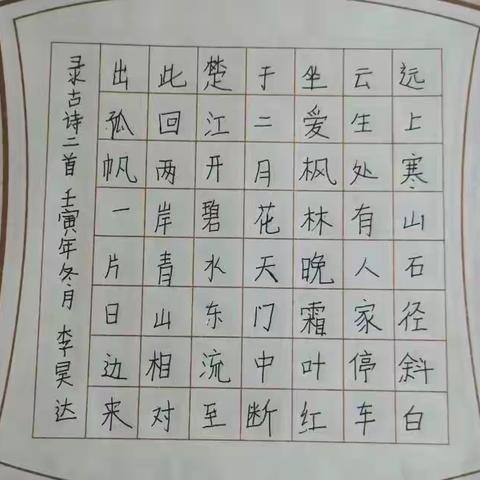 远上寒山石径斜白
云生处有人家停车
坐爱枫林晚霜叶红
于二月花天门中断
楚江开碧水东流至
此回两岸青山相对
出孤帆一片日边来
录古诗二首 壬寅年冬月 李昊达